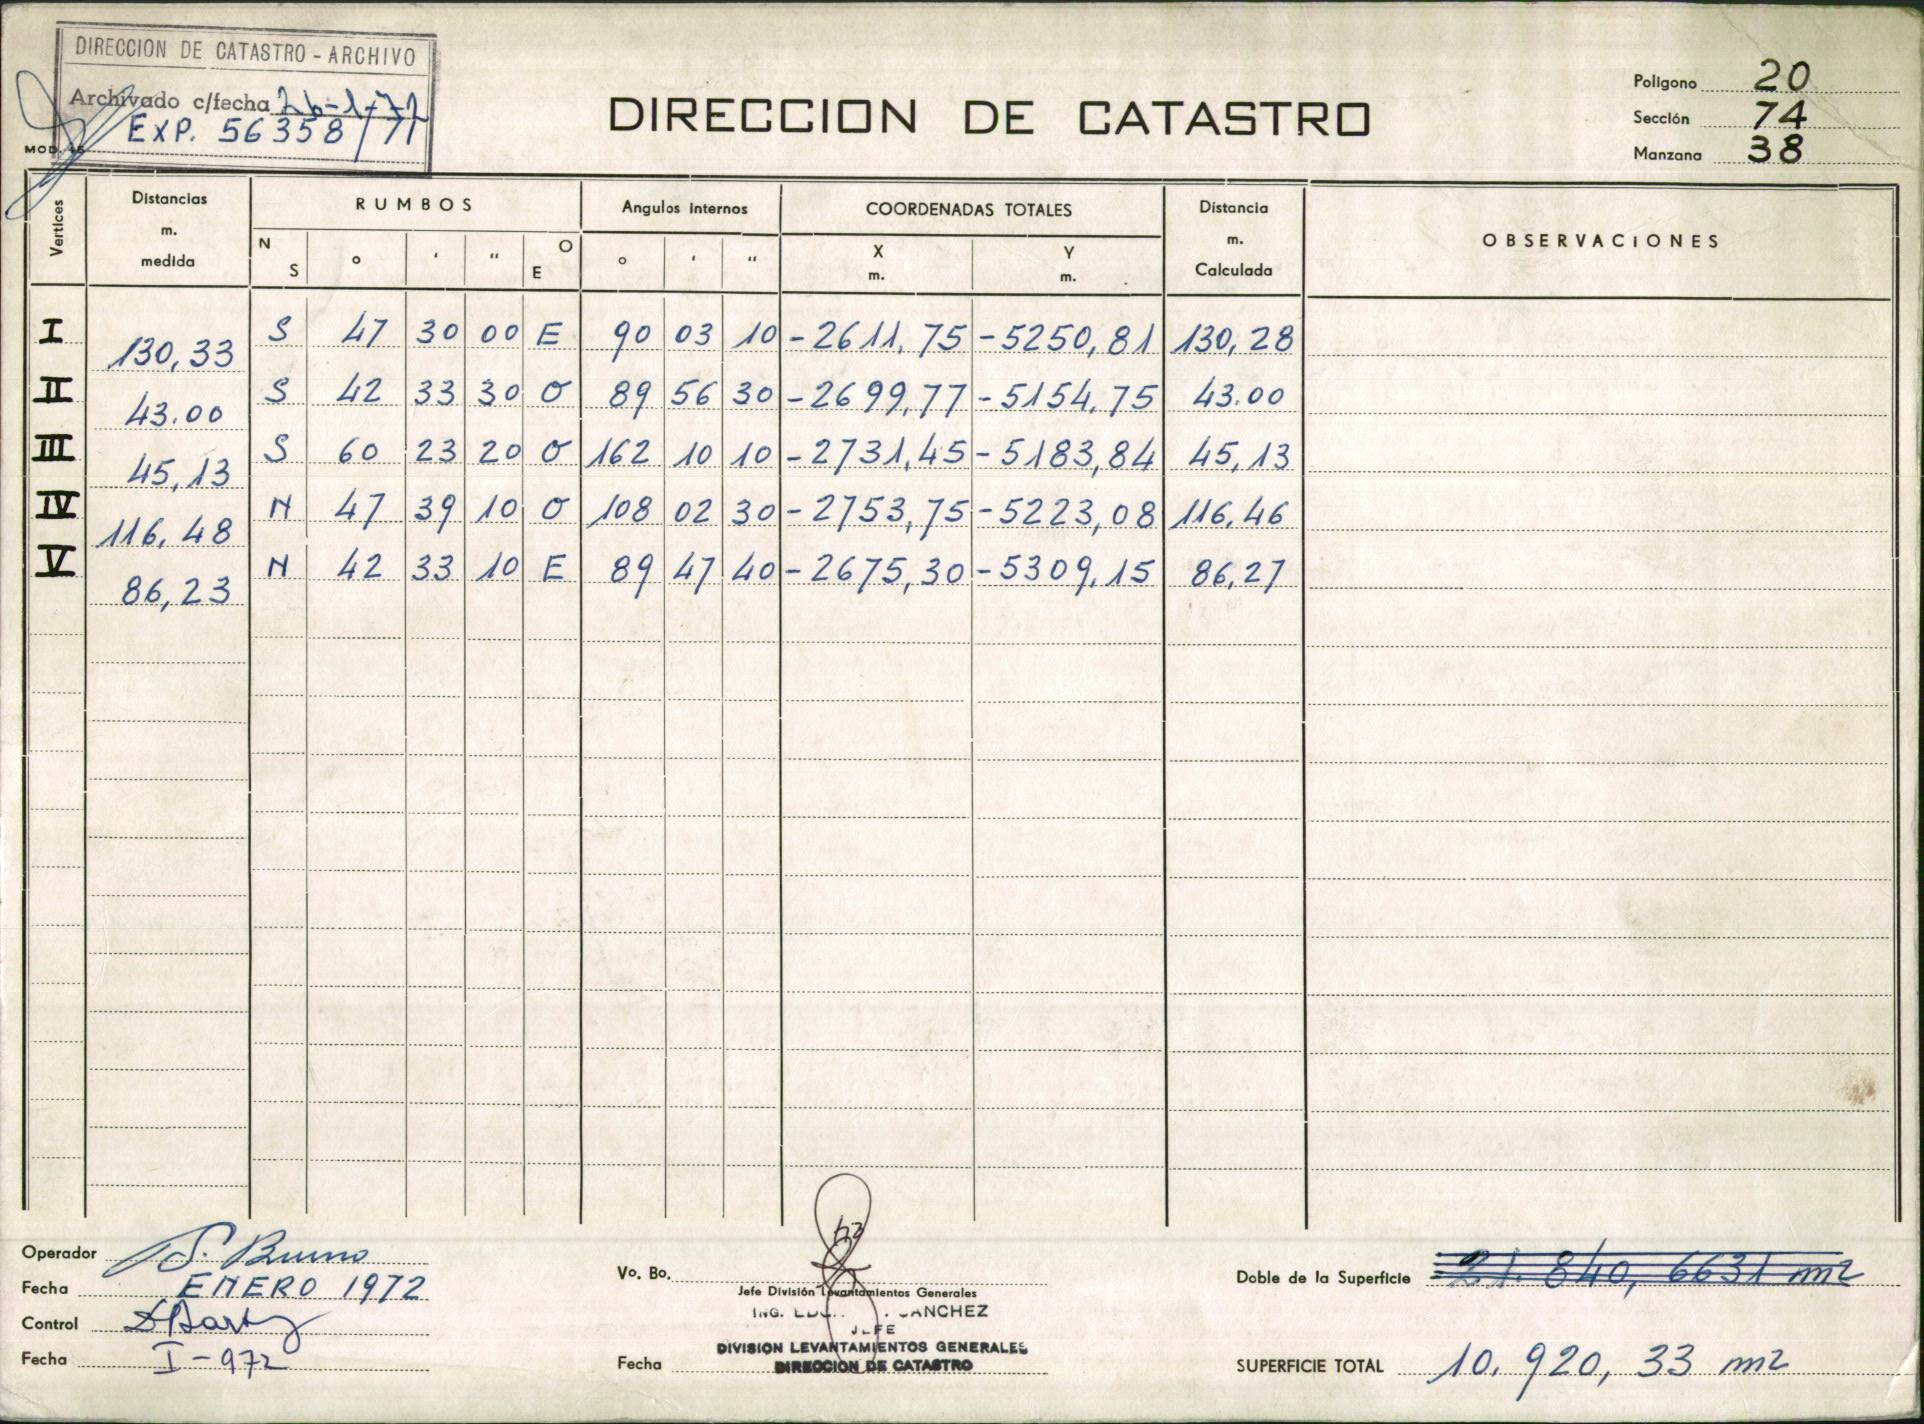 DIRECCION DE CATASTRO - ARCHIVO
Archivado c/fecha 26-1-72
EXP. 56358/71
MOD.
DIRECCION DE CATASTRO
Poligono 20
Sección 74
Manzana 38
Vertices
Distancias m. medida
RUMBOS
Angulos internos
COORDENADAS TOTALES
Distancia m. Calculada
OBSERVACIONES
N S ° ' " O E ° ' " X m. Y m.
I 130,33 S 47 30 00 E 90 03 10 -2611,75 -5250,81 130,28
II 43.00 S 42 33 30 O 89 56 30 -2699,77 -5154,75 43.00
III 45,13 S 60 23 20 O 162 10 10 -2731,45 -5183,84 45,13
IV 116,48 N 47 39 10 O 108 02 30 -2753,75 -5223,08 116,46
V 86,23 N 42 33 10 E 89 47 40 -2675,30 -5309,15 86,27
Operador S. Bruno
Fecha ENERO 1972
Control
Fecha I-972
Vo. Bo.
Jefe División Levantamientos Generales
ING. SANCHEZ
JEFE
DIVISION LEVANTAMIENTOS GENERALES
Fecha DIRECCION DE CATASTRO
Doble de la Superficie 21.840,6631 m2
SUPERFICIE TOTAL 10.920,33 m2